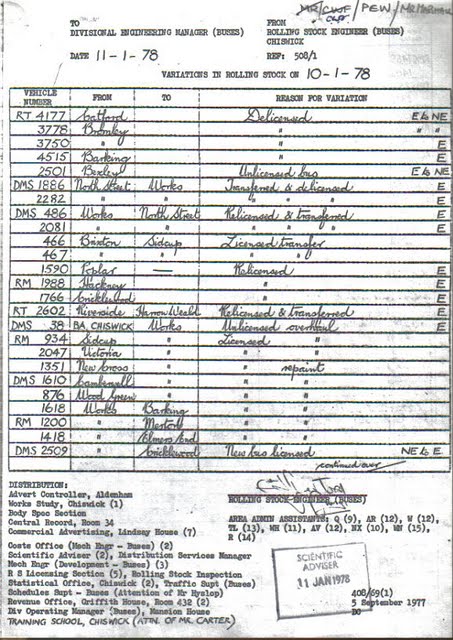 MR CHOF / PEW / MR MARINER
TO FROM
DIVISIONAL ENGINEERING MANAGER (BUSES) ROLLING STOCK ENGINEER (BUSES)
CHISWICK
DATE 11-1-78 REF: 508/1
VARIATIONS IN ROLLING STOCK ON 10-1-78
VEHICLE NUMBER FROM TO REASON FOR VARIATION
RT 4177 Catford Delicensed E & NE
3778 Bromley " " "
3750 " " E
4515 Barking " E
2501 Bexley Unlicensed bus E & NE
DMS 1886 North Street Works Transferred & delicensed E
2282 " " " " " E
DMS 486 Works North Street Relicensed & transferred E
2081 " " " " " E
466 Brixton Sidcup Licensed transfer
467 " " " "
1590 Poplar — Relicensed E
RM 1988 Hackney " E
1766 Cricklewood " E
RT 2602 Riverside Harrow Weald Relicensed & transferred E
DMS 38 BA, CHISWICK Works Unlicensed overhaul E
RM 934 Sidcup " Licensed "
2047 Victoria " " "
1351 New Cross " " repaint
DMS 1610 Camberwell " " "
876 Wood Green " " "
1618 Works Barking " "
RM 1200 " Merton " "
1418 " Elmers End " "
DMS 2509 Cricklewood New bus licensed NE & E
continued over
DISTRIBUTION:
Advert Controller, Aldenham
Works Study, Chiswick (1)
Body Spec Section
Central Record, Room 34
Commercial Advertising, Lindsay House (7)
Costs Office (Mech Engr - Buses) (2)
Scientific Adviser (2), Distribution Services Manager
Mech Engr (Development) (3)
R S Licensing Section (5), Rolling Stock Inspection
Statistical Office, Chiswick (2), Traffic Supt (Buses)
Schedules Supt - Buses (Attention of Mr Hyslop)
Revenue Office, Griffith House, Room 432 (2)
Div Operating Manager (Buses), Mansion House
TRAINING SCHOOL, CHISWICK (ATTN. OF MR. CARTER)
ROLLING STOCK ENGINEER (BUSES)
AREA ADMIN ASSISTANTS: Q (9), AR (12), W (12),
TL (13), WH (11), AV (12), NX (10), MN (15),
R (14)
SCIENTIFIC
ADVISER
11 JAN 1978
408/69(1)
5 September 1977
DO